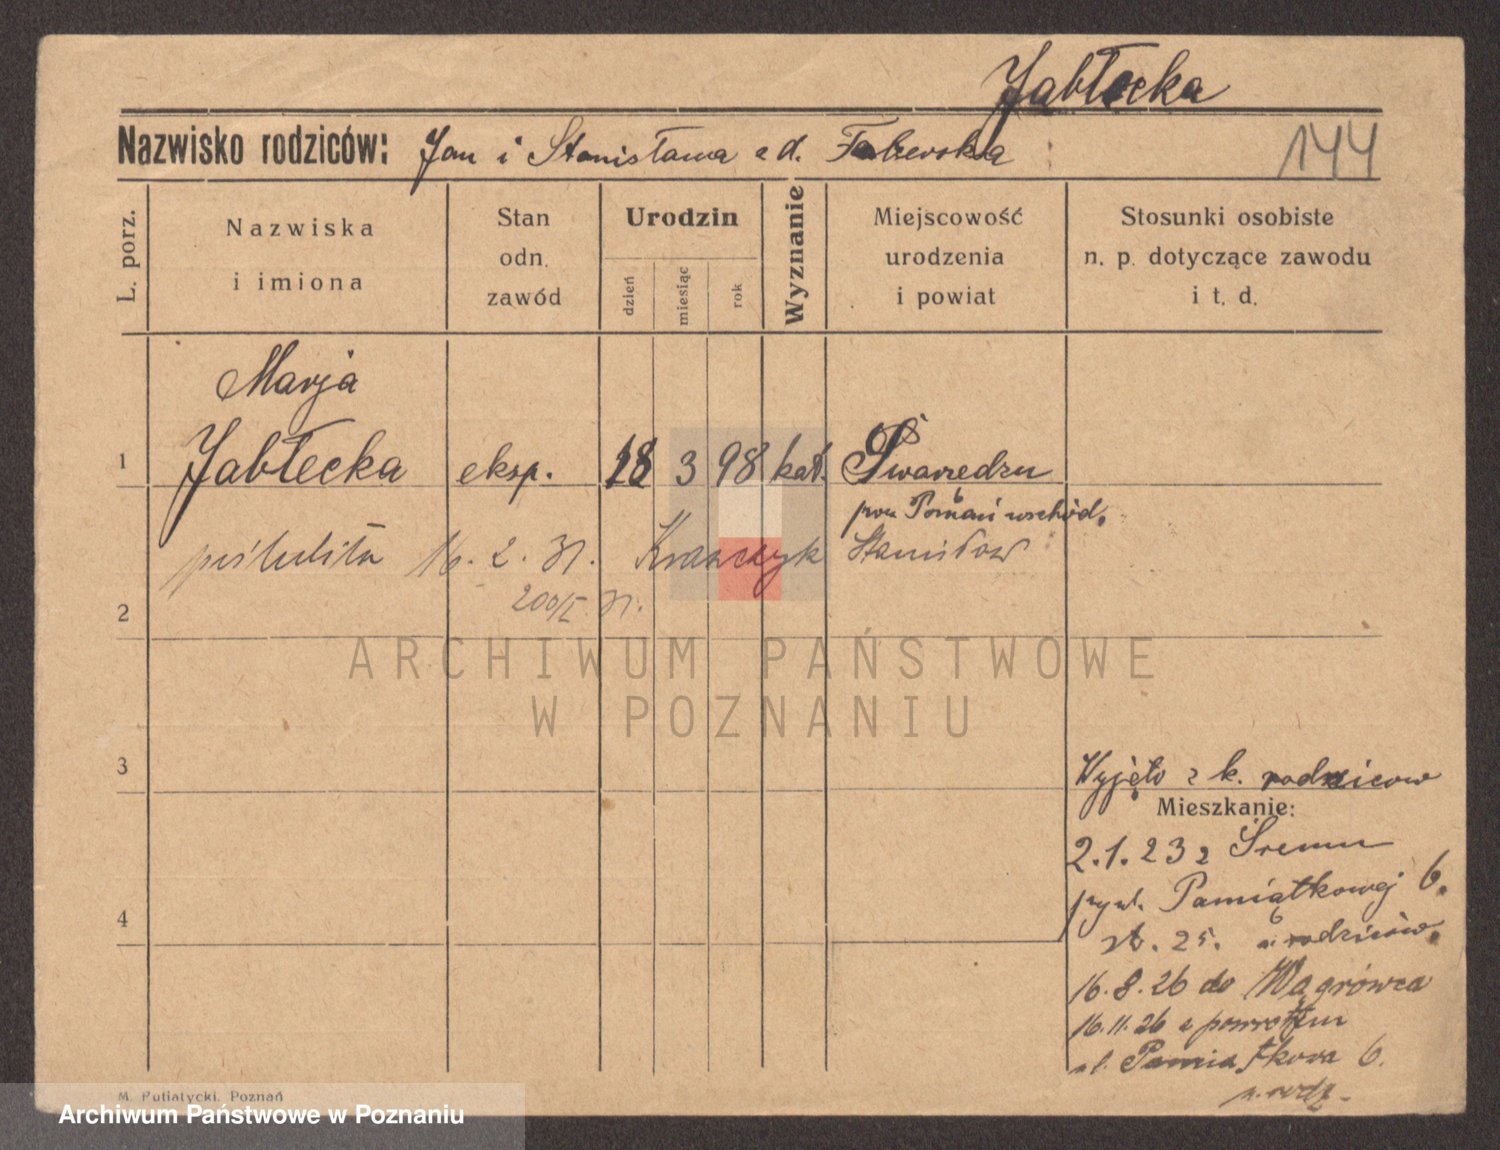 Jabłecka
Nazwisko rodziców: Jan i Stanisława z d.
144
L. porz.
Nazwiska
i imiona
Stan
odn.
zawód
Urodzin
dzień
miesiąc
rok
Wyznanie
Miejscowość
urodzenia
i powiat
Stosunki osobiste
n. p. dotyczące zawodu
i t. d.
Marja
1 Jabłecka eksp. 18 3 98 kat. Swarzędzu
pow Poznań wschód.
16. 2. 31. Krawczyk Stanisław
2
ARCHIWUM PAŃSTWOWE
W POZNANIU
3
Wyjęto z k. rodziców
Mieszkanie:
2.1.23 z Śremu
Pamiątkowej 6.
4
25. rodziców.
16.8.26 do Wągrówca
16.11.26 z powrotem
ul. Pamiątkowa 6.
u. rodz.
M. Putiatycki, Poznań
Archiwum Państwowe w Poznaniu